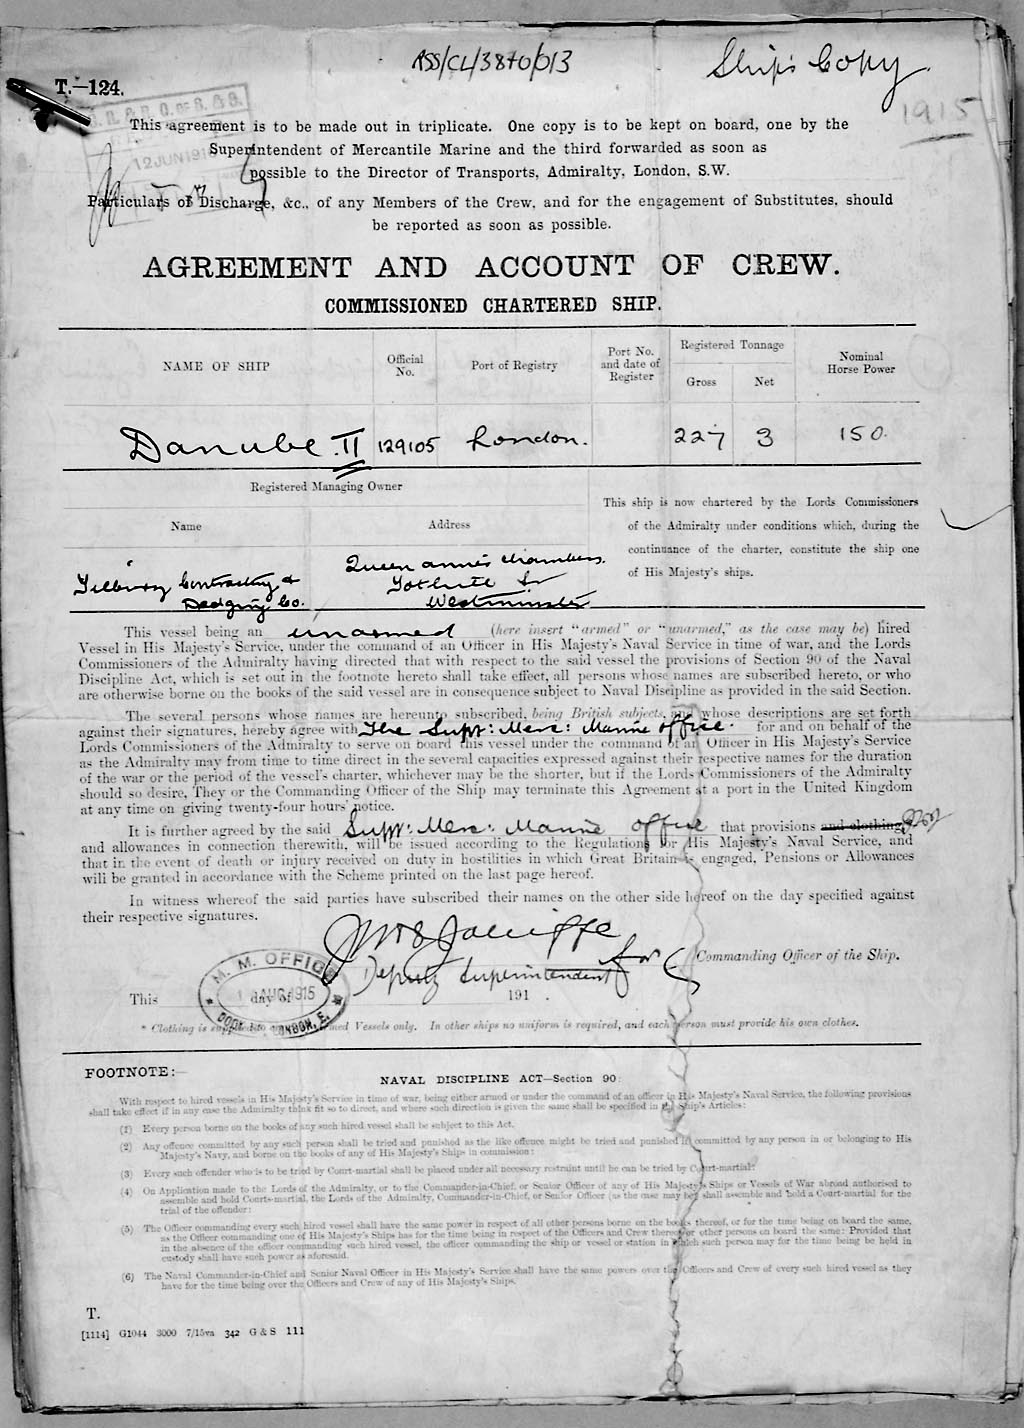 RSS/CL/3840/013
Ship's Copy
1915
T.—124.
12 JUN 191
This agreement is to be made out in triplicate. One copy is to be kept on board, one by the
Superintendent of Mercantile Marine and the third forwarded as soon as
possible to the Director of Transports, Admiralty, London, S.W.
Particulars of Discharge, &c., of any Members of the Crew, and for the engagement of Substitutes, should
be reported as soon as possible.
AGREEMENT AND ACCOUNT OF CREW.
COMMISSIONED CHARTERED SHIP.
NAME OF SHIP
Official No.
Port of Registry
Port No. and date of Register
Registered Tonnage
Gross
Net
Nominal Horse Power
Danube II 129105 London. 227 3 150.
Registered Managing Owner
Name
Address
Tilbury Contracting & Dredging Co.
Queen Anne's Chambers.
Tothill St
Westminster
This ship is now chartered by the Lords Commissioners
of the Admiralty under conditions which, during the
continuance of the charter, constitute the ship one
of His Majesty's ships.
This vessel being an unarmed (here insert "armed" or "unarmed," as the case may be) hired
Vessel in His Majesty's Service, under the command of an Officer in His Majesty's Naval Service in time of war, and the Lords
Commissioners of the Admiralty having directed that with respect to the said vessel the provisions of Section 90 of the Naval
Discipline Act, which is set out in the footnote hereto shall take effect, all persons whose names are subscribed hereto, or who
are otherwise borne on the books of the said vessel are in consequence subject to Naval Discipline as provided in the said Section.
The several persons whose names are hereunto subscribed, being British subjects, and whose descriptions are set forth
against their signatures, hereby agree with The Supt: Merc: Marine Office for and on behalf of the
Lords Commissioners of the Admiralty to serve on board this vessel under the command of an Officer in His Majesty's Service
as the Admiralty may from time to time direct in the several capacities expressed against their respective names for the duration
of the war or the period of the vessel's charter, whichever may be the shorter, but if the Lords Commissioners of the Admiralty
should so desire, They or the Commanding Officer of the Ship may terminate this Agreement at a port in the United Kingdom
at any time on giving twenty-four hours' notice.
It is further agreed by the said Supt: Merc: Marine Office that provisions and clothing*
and allowances in connection therewith, will be issued according to the Regulations for His Majesty's Naval Service, and
that in the event of death or injury received on duty in hostilities in which Great Britain is engaged, Pensions or Allowances
will be granted in accordance with the Scheme printed on the last page hereof.
In witness whereof the said parties have subscribed their names on the other side hereof on the day specified against
their respective signatures.
Deputy Superintendent for Commanding Officer of the Ship.
M. M. OFFICE
AUG 1915
LONDON, E.
This day of 191 .
* Clothing is supplied to Vessels only. In other ships no uniform is required, and each person must provide his own clothes.
FOOTNOTE:—
NAVAL DISCIPLINE ACT—Section 90
With respect to hired vessels in His Majesty's Service in time of war, being either armed or under the command of an officer in His Majesty's Naval Service, the following provisions
shall take effect if in any case the Admiralty think fit so to direct, and where such direction is given the same shall be specified in the Ship's Articles:
(1) Every person borne on the books of any such hired vessel shall be subject to this Act.
(2) Any offence committed by any such person shall be tried and punished as the like offence might be tried and punished if committed by any person in or belonging to His
Majesty's Navy, and borne on the books of any of His Majesty's Ships in commission:
(3) Every such offender who is to be tried by Court-martial shall be placed under all necessary restraint until he can be tried by Court-martial:
(4) On Application made to the Lords of the Admiralty, or to the Commander-in-Chief, or Senior Officer of any of His Majesty's Ships or Vessels of War abroad authorised to
assemble and hold Courts-martial, the Lords of the Admiralty, Commander-in-Chief, or Senior Officer (as the case may be) shall assemble and hold a Court-martial for the
trial of the offender:
(5) The Officer commanding every such hired vessel shall have the same power in respect of all other persons borne on the books thereof, or for the time being on board the same,
as the Officer commanding one of His Majesty's Ships has for the time being in respect of the Officers and Crew thereof or other persons on board the same: Provided that
in the absence of the officer commanding such hired vessel, the officer commanding the ship or vessel or station in which such person may for the time being be held in
custody shall have such power as aforesaid.
(6) The Naval Commander-in-Chief and Senior Naval Officer in His Majesty's Service shall have the same powers over the Officers and Crew of every such hired vessel as they
have for the time being over the Officers and Crew of any of His Majesty's Ships.
T.
[1114] G1044 3000 7/15va 342 G & S 111